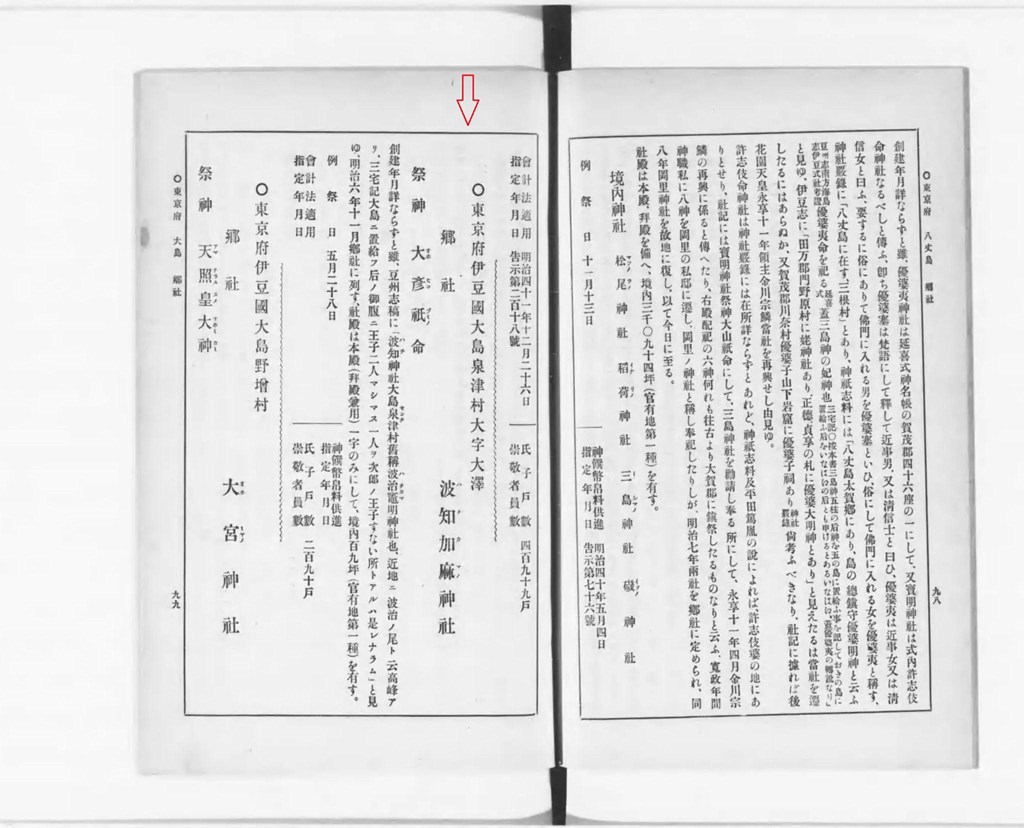 ○東京府 八丈島 郷社
九八
創建年月詳ならずと雖、優婆夷神社は延喜式神名帳の賀茂郡四十六座の一にして、又寶明神社は式內許志伎
命神社なるべしと傳ふ、卽ち優婆塞は梵語にして釋して近事男、又は淸信士と曰ひ、優婆夷は近事女又は淸
信女と曰ふ、要するに俗にありて佛門に入れる男を優婆塞といひ、俗にして佛門に入れる女を優婆夷と稱す、
神社覈錄に「八丈島に在す、三根村」とあり、神祇志料には「八丈島大賀鄕にあり、島の總鎭守優婆明神と云ふ
優婆夷命を祀る 蓋三島神の妃神也
と見ゆ、伊豆志に「田方郡門野原村に姥神社あり、正德、貞享の札に優婆大明神とあり」と見えたるは當社を遷
したるにはあらぬか、又賀茂郡川奈村優婆子山下岩窟に優婆子祠あり 神社覈錄 尙考ふべきなり、社記に據れば後
花園天皇永享十一年領主金川宗鱗當社を再興せし由見ゆ。
許志伎命神社は神社覈錄には在所詳ならずとあれど、神祇志料及平田篤胤の說によれば、許志伎婆の地にあ
りとせり、社記には寶明神社祭神大山祇命にして、三島神社を勸請し奉る所にして、永享十一年四月金川宗
鱗の再興に係ると傳へたり、右殿配祀の六神何れも往古より大賀鄕に鎭祭したるものなりと云ふ、寬政年間
神職私に八神を岡里の私邸に遷し、岡里ノ神社と稱し奉祀したりしが、明治七年兩社を鄕社に定められ、同
八年岡里神社を故地に復し、以て今日に至る。
社殿は本殿、拜殿を備へ、境內三千〇九十四坪(官有地第一種)を有す。
境內神社 松尾神社 稻荷神社 三島神社 磯神社
例祭日 十一月十三日
神饌幣帛料供進指定年月日 明治四十年五月四日 告示第七十六號
會計法適用指定年月日 明治四十一年十二月二十六日 告示第二百十八號
氏子戶數 四百九十九戶
崇敬者員數
○東京府伊豆國大島泉津村大字大澤
鄕社 波知加麻神社
祭神 大彥祇命
創建年月詳ならずと雖、豆州志稿に「波知神社大島泉津村舊稱波治竈明神社也、近地ニ波治ノ尾ト云高峰ア
リ、三宅記大島ニ置給フ后ノ御腹ニ王子二人マシマス一人ヲ次郎ノ王子すない所トアルハ是レナラム」と見
ゆ、明治六年十一月鄕社に列す、社殿は本殿(拜殿兼用)一宇のみにして、境內百九坪(官有地第一種)を有す。
例祭日 五月二十八日
神饌幣帛料供進指定年月日
會計法適用指定年月日
氏子戶數 二百九十戶
崇敬者員數
○東京府伊豆國大島野增村
鄕社 大宮神社
祭神 天照皇大神
○東京府 大島 郷社
九九